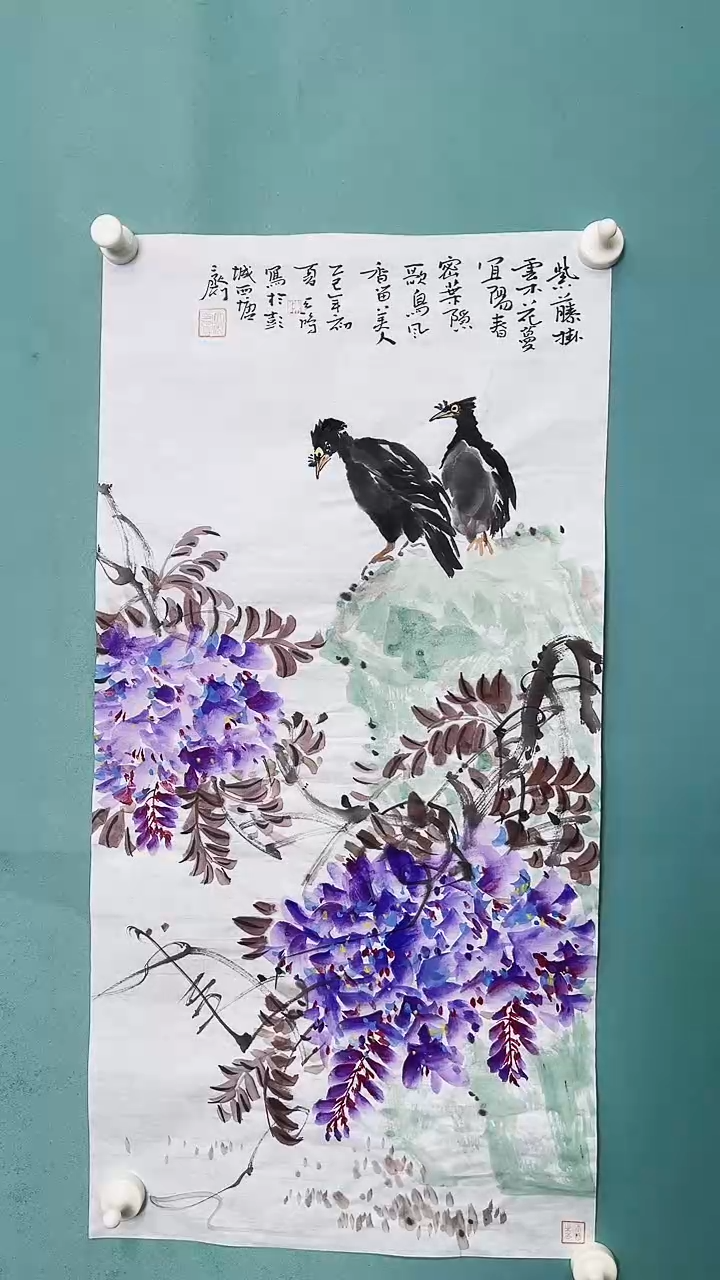 紫藤掛
雲木花蔓
宜陽春
密葉隱
歌鳥風
香留美人
乙巳年初
夏
寫於彭
城西塘